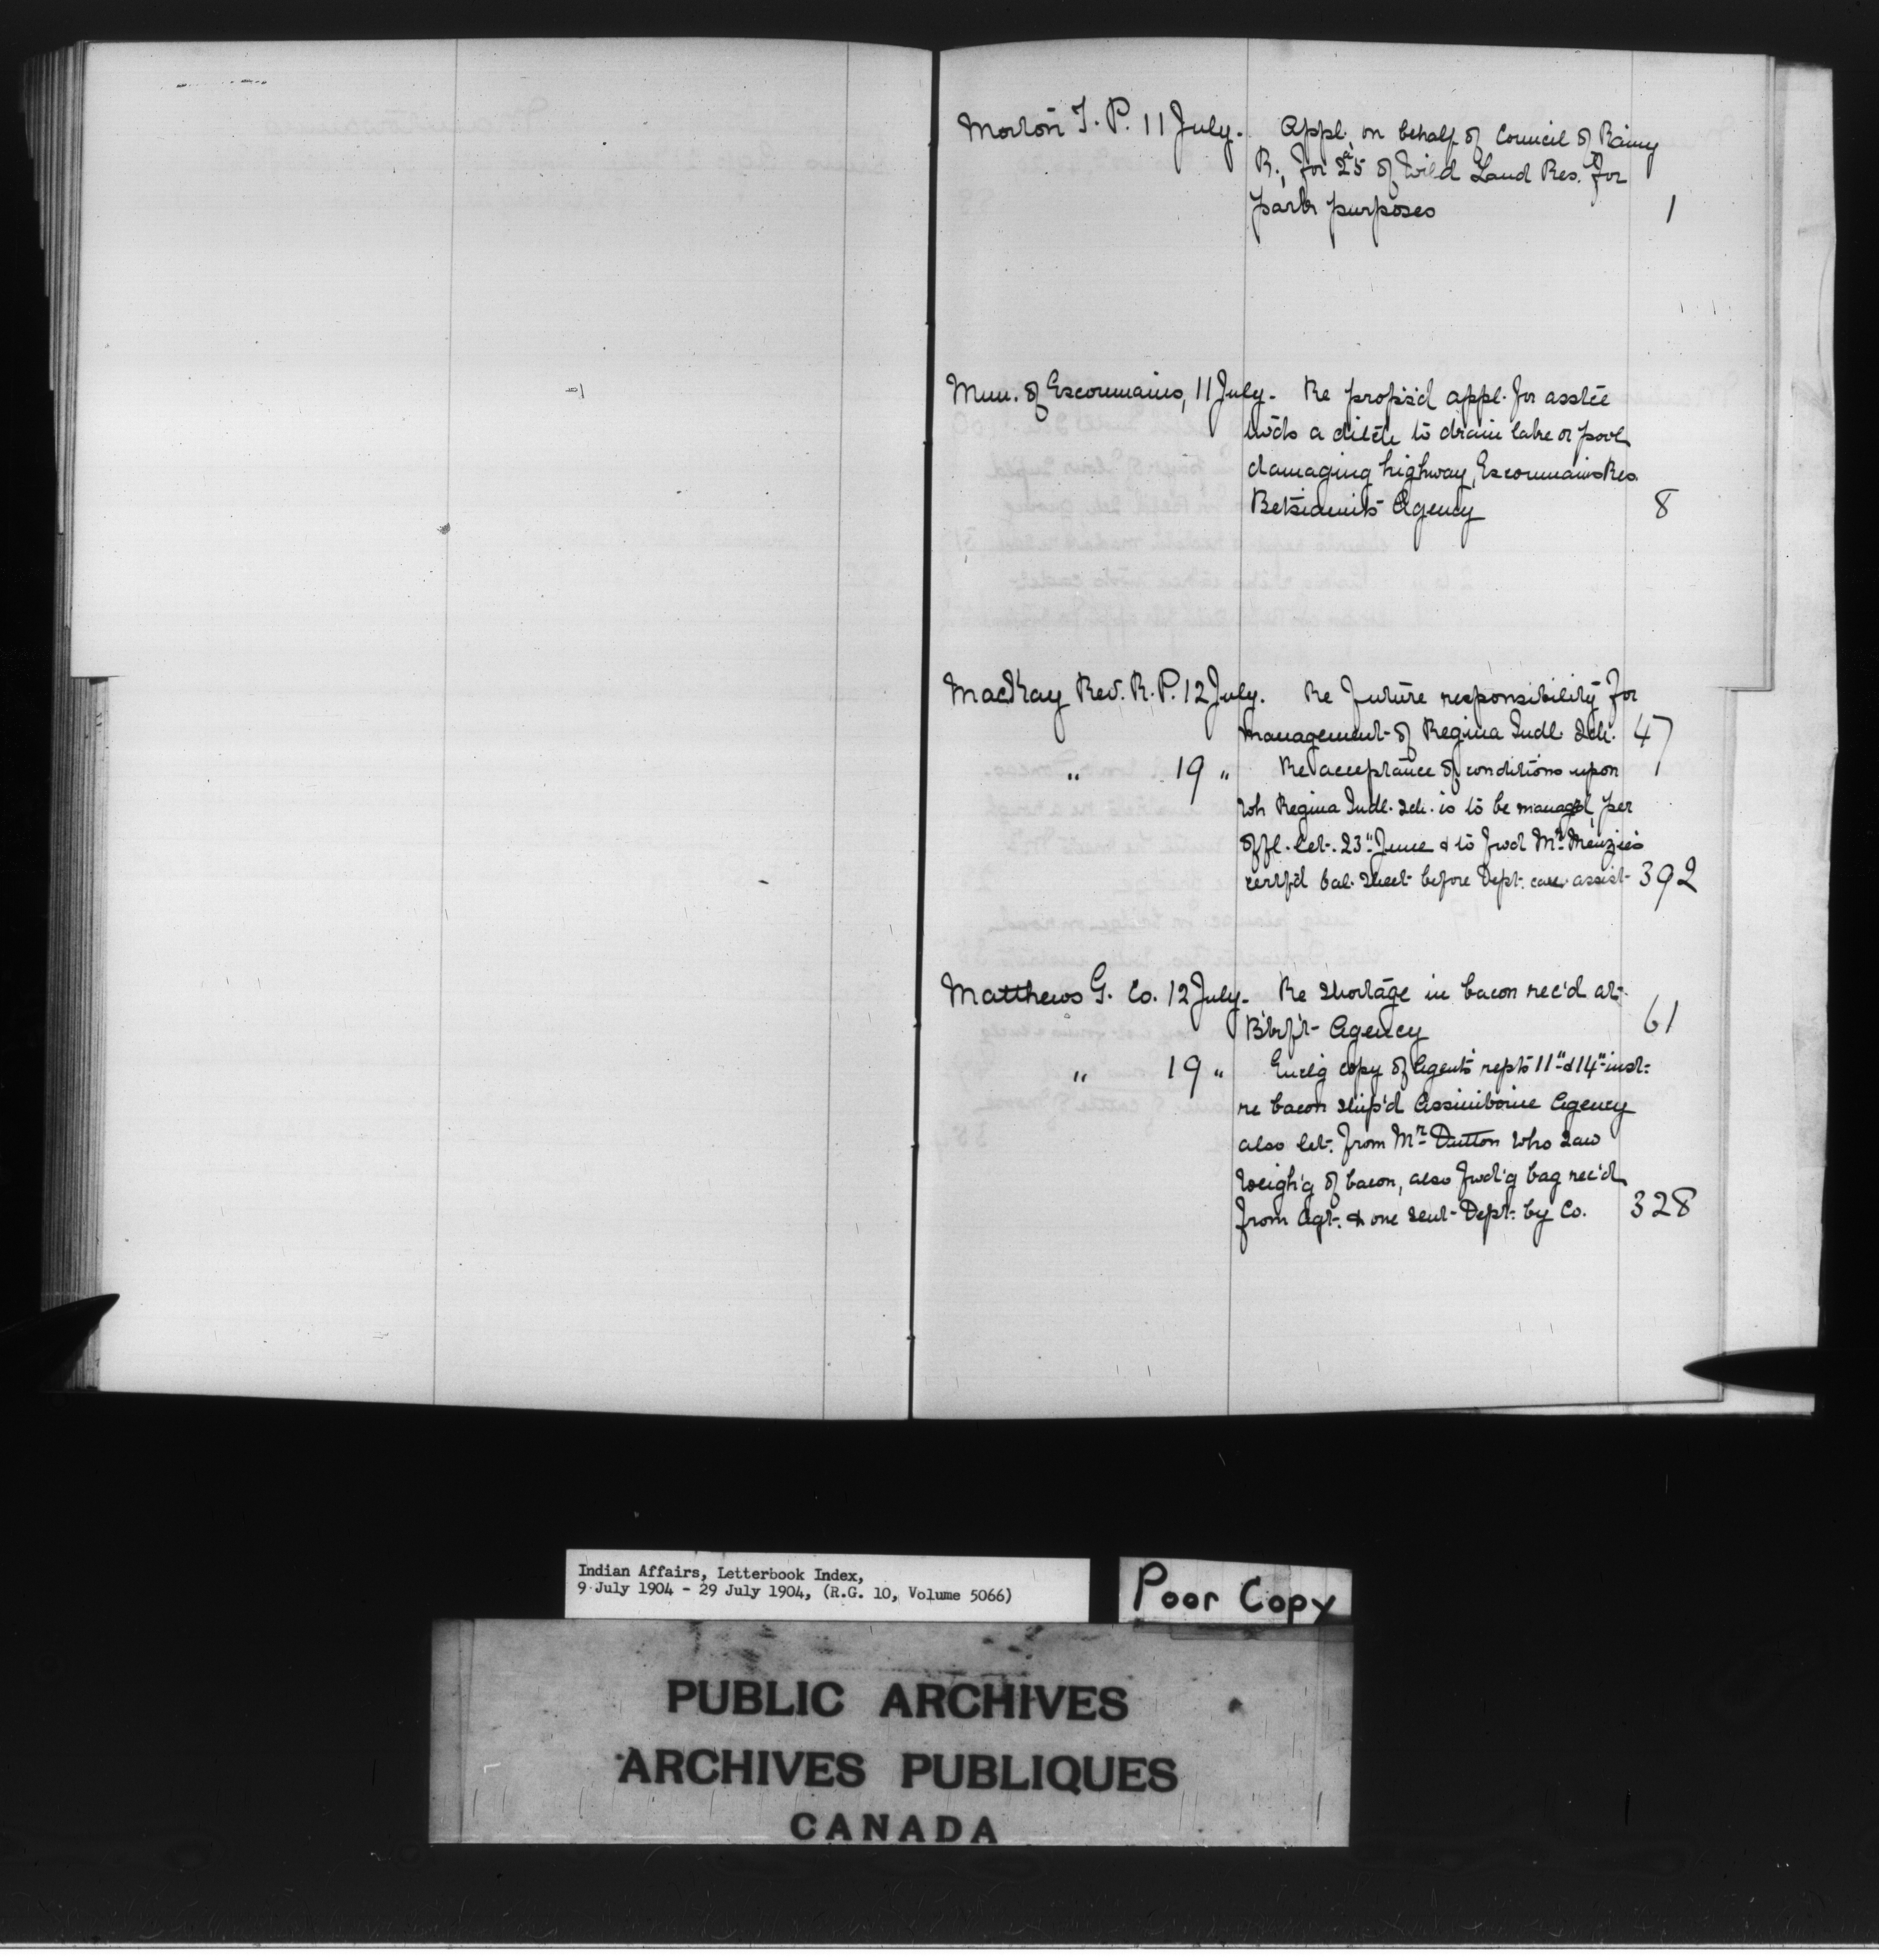 Morton T. P. 11 July. Appl. on behalf of Council of Rainy
R., for 25 of Wild Land Res. for
park purposes 1
Mun. of Escoumains, 11 July. Re propos'd appl. for
a ditch to drain lake or pool
damaging highway, Escoumains Res.
Betsiamits Agency 8
MacKay Rev. R. P. 12 July. Re future responsibility for
management of Regina Indl. Sch. 47
" 19 " Re acceptance of conditions upon
wh Regina Indl. Sch. is to be manag'd, per
offl. let. 23" June & to fwd Mr. Menzies
certf'd bal. sheet before Dept. can assist 392
Matthews G. Co. 12 July. Re shortage in bacon rec'd at
Agency 61
" 19 " Encl'g copy of Agent's repts 11" & 14" inst.
re bacon ship'd Assiniboine Agency
also let. from Mr. Dutton who saw
weigh'g of bacon, also fwd'g bag rec'd
from Agt. & one sent Dept. by Co. 328
Indian Affairs, Letterbook Index,
9 July 1904 - 29 July 1904, (R.G. 10, Volume 5066)
Poor Copy
PUBLIC ARCHIVES
ARCHIVES PUBLIQUES
CANADA